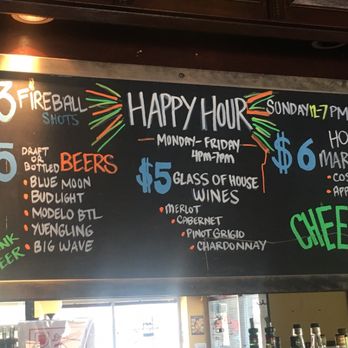 3 FIREBALL
SHOTS
5 DRAFT OR
BOTTLED BEERS
• BLUE MOON
• BUD LIGHT
• MODELO BTL
• YUENGLING
• BIG WAVE
HAPPY HOUR
MONDAY-FRIDAY
4PM-7PM
$5 GLASS OF HOUSE
WINES
• MERLOT
• CABERNET
• PINOT GRIGIO
• CHARDONNAY
SUNDAY 12-7 PM
$6 HO
MAR
• COS
• APP
CHEE
NK
EER